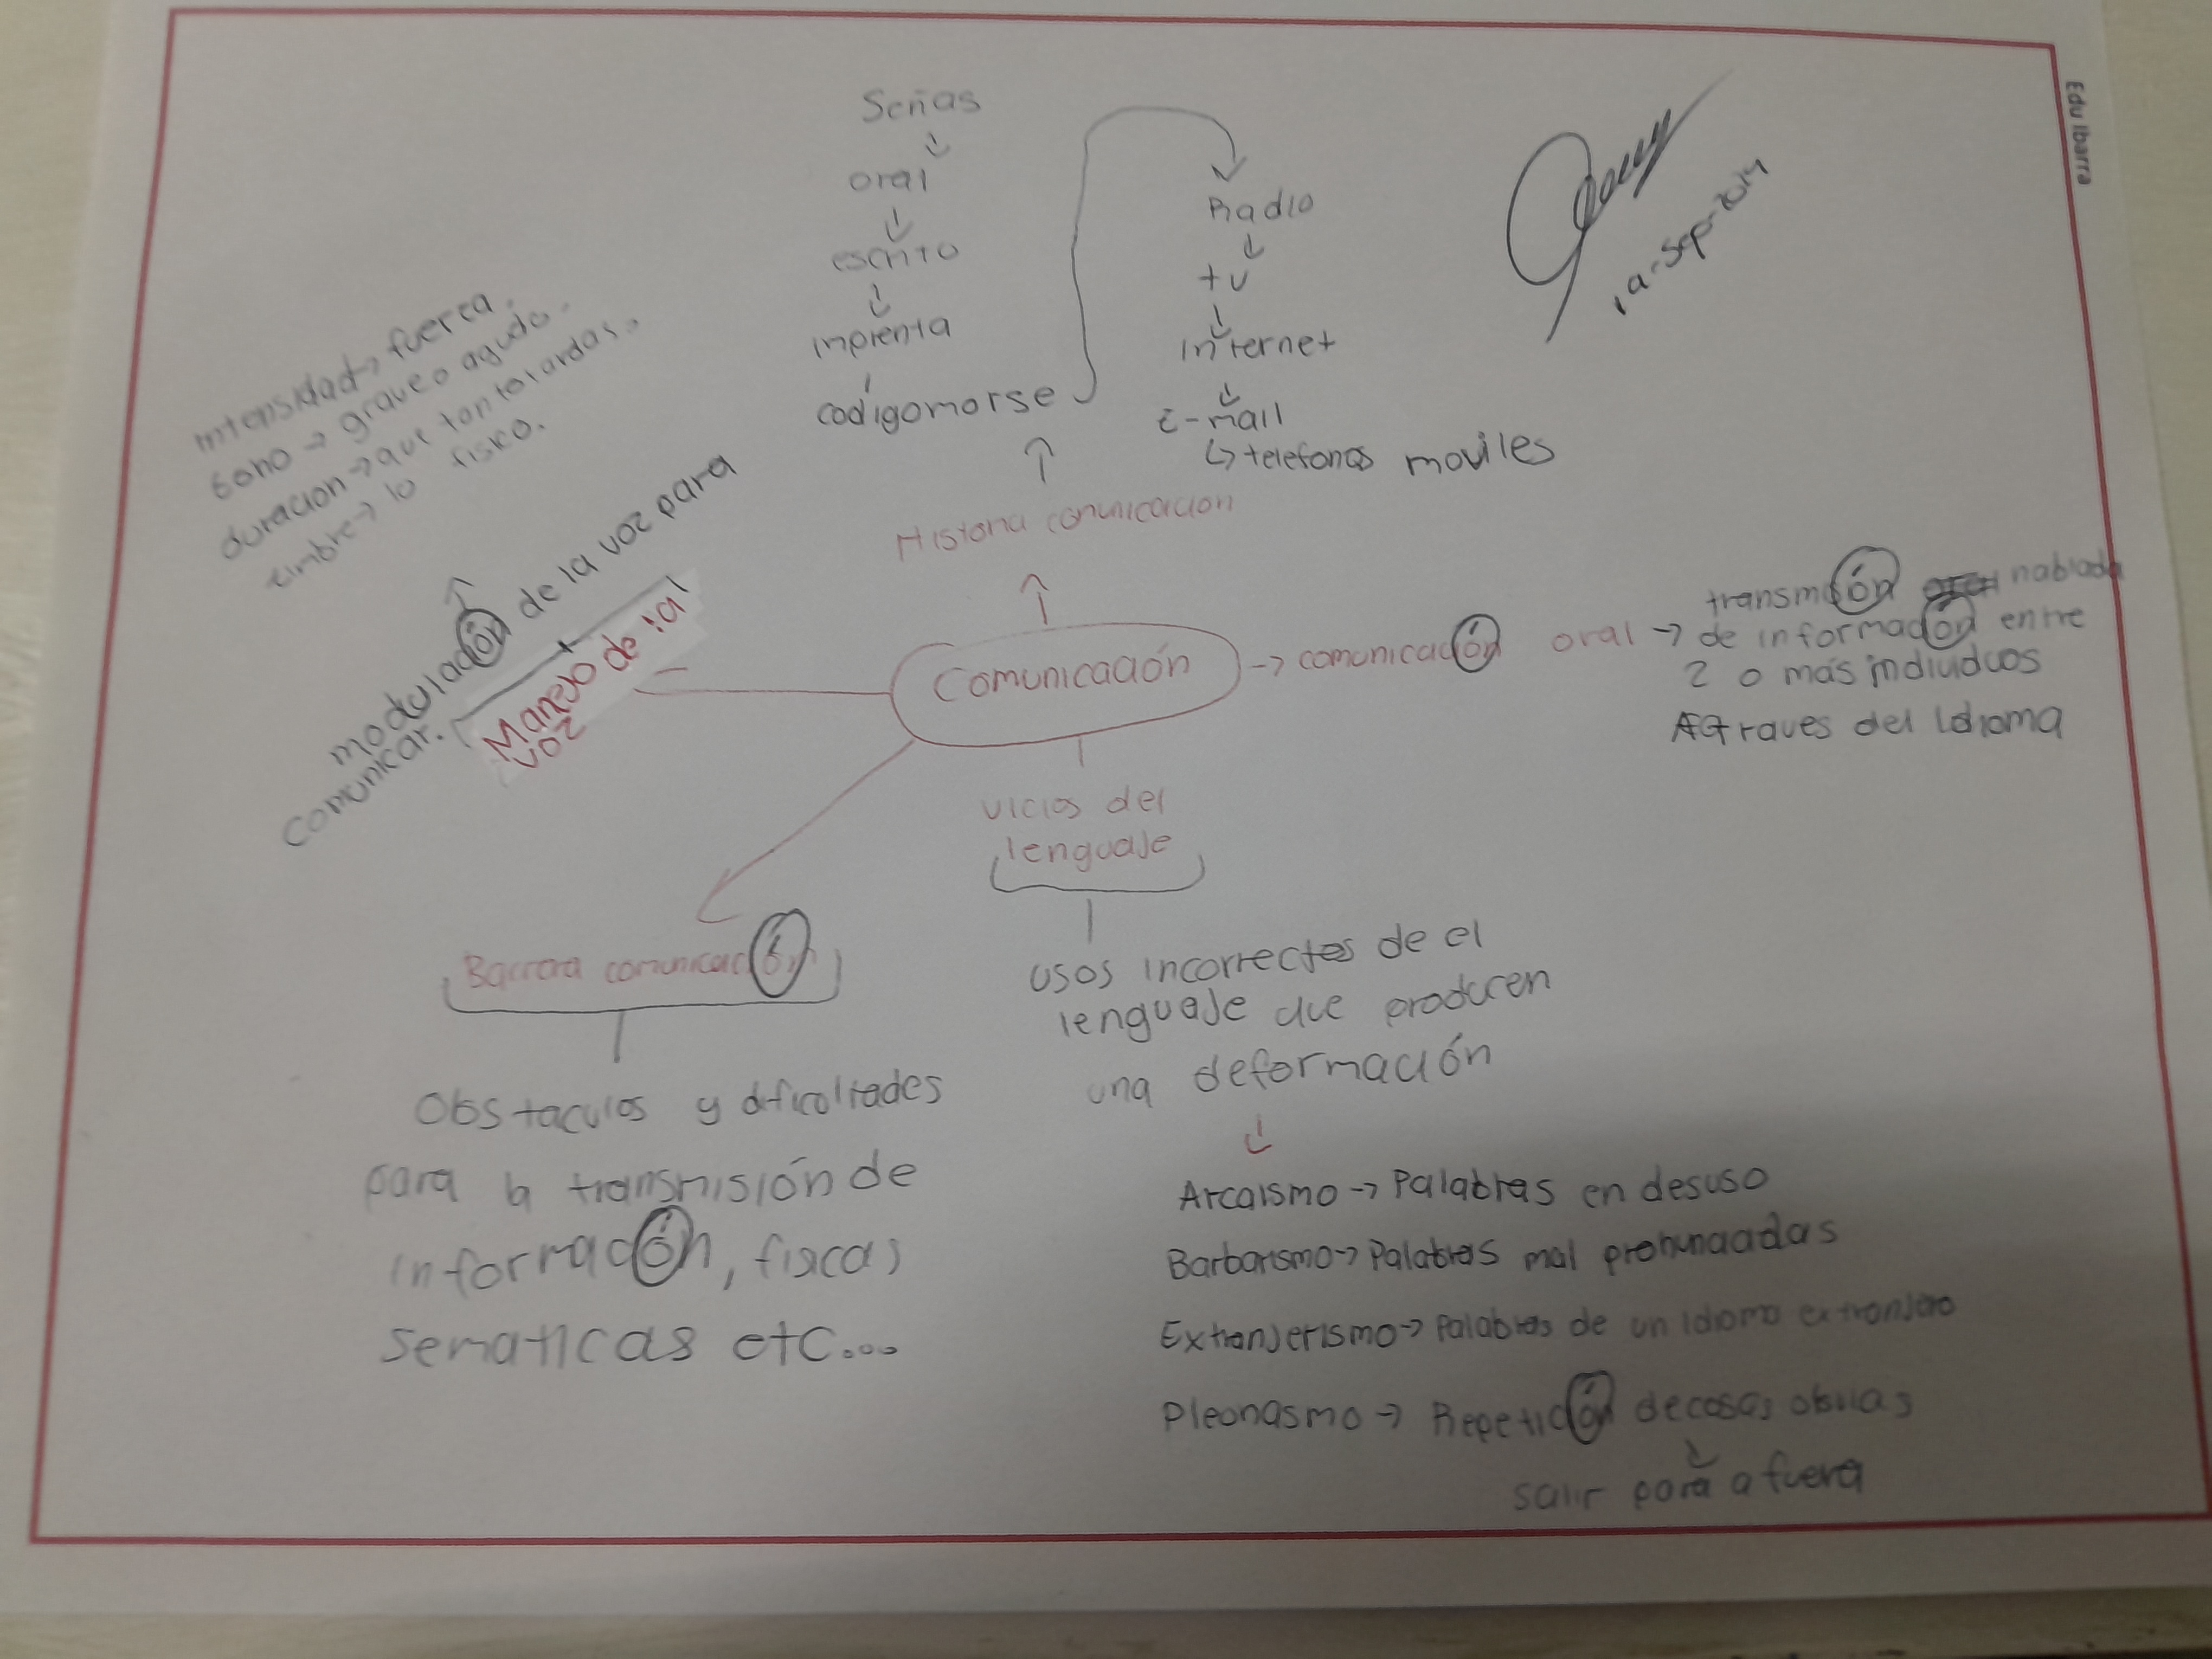 Edu Ibarra
Señas
oral
escrito
imprenta
codigomorse
Radio
tv
internet
E-mail
telefonos moviles
Historia comunicacion
intensidad → fuerza.
tono → grave o agudo.
duracion → que tan to tardas.
timbre → lo fisico.
modulación de la voz para
comunicar.
Manejo de la
voz
Comunicación
→ comunicación oral →
transmión hablada
de información entre
2 o más individuos
Atraves del Idioma
vicios del
lenguaje
usos incorrectos de el
lenguaje que producen
una deformación
Arcaismo → Palabras en desuso
Barbarismo → Palabras mal pronunciadas
Extranjerismo → Palabras de un idioma extranjero
Pleonasmo → Repetición de cosas obvias
salir para a fuera
Barrera comunicación
Obstaculos y dificoltades
para la transmisión de
información, fisicas
sematicas etc...